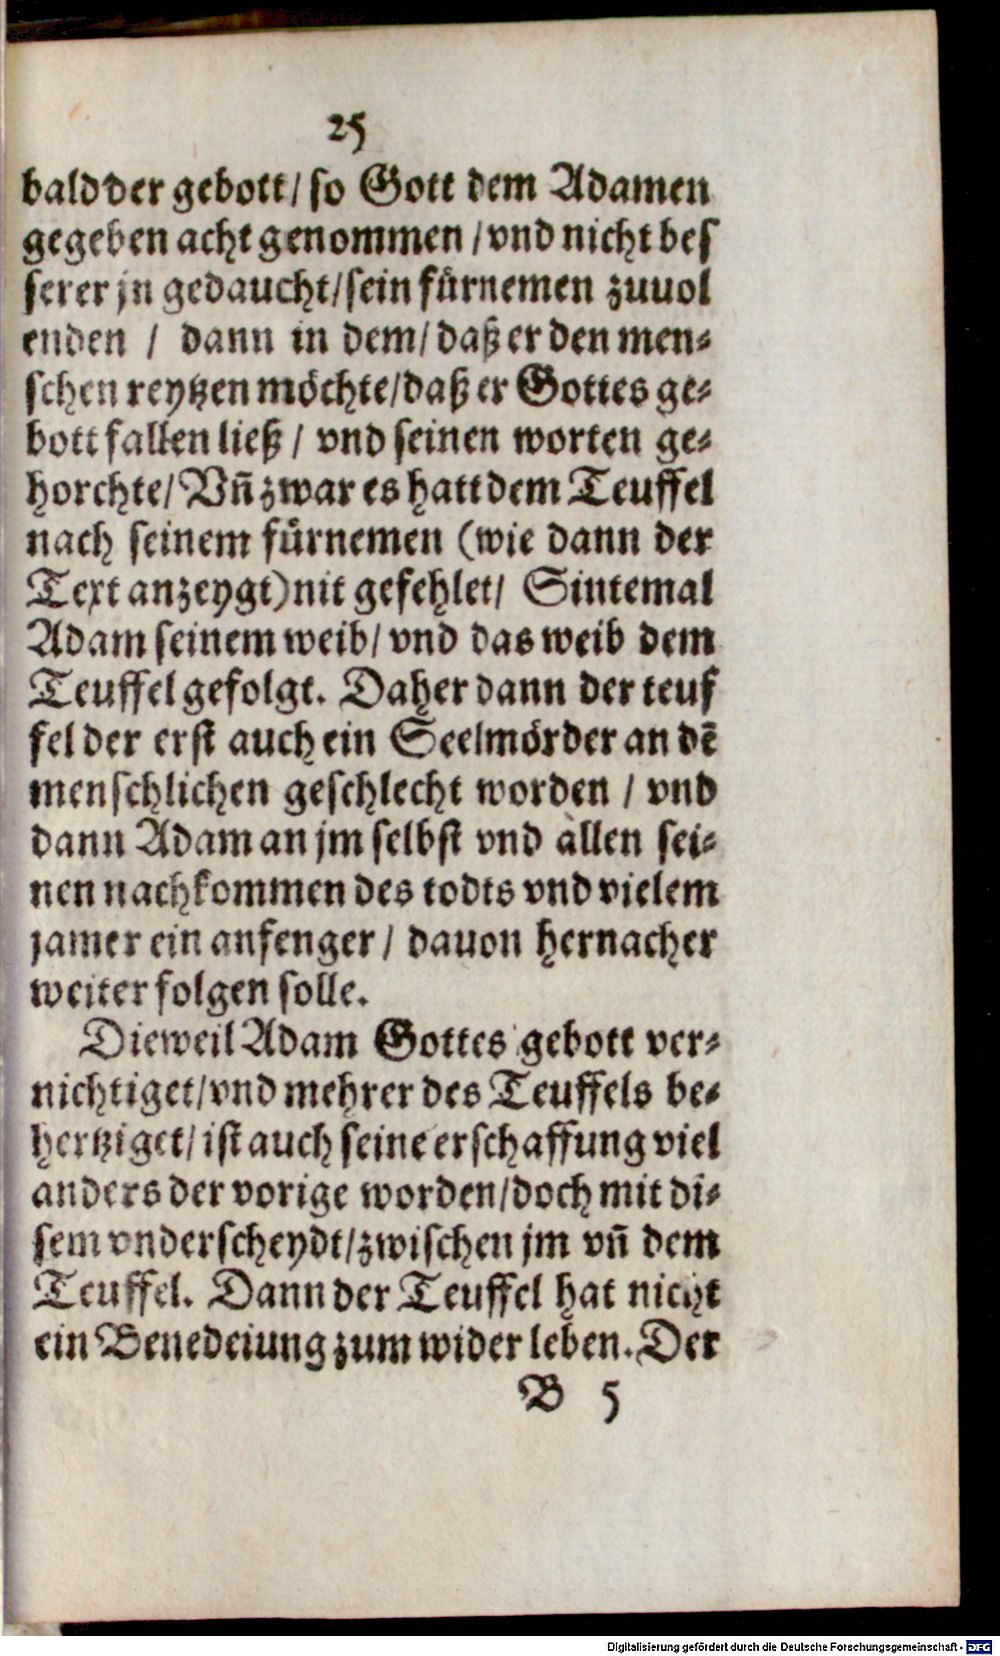 25
bald der gebott / so Gott dem Adamen
gegeben acht genommen / vnd nicht bes
serer jn gedaucht / sein fürnemen zuuol
enden / dann in dem / daß er den men⸗
schen reytzen möchte / daß er Gottes ge⸗
bott fallen ließ / vnd seinen worten ge⸗
horchte / Vñ zwar es hatt dem Teuffel
nach seinem fürnemen (wie dann der
Text anzeygt) nit gefehlet / Sintemal
Adam seinem weib / vnd das weib dem
Teuffel gefolgt. Daher dann der teuf
fel der erst auch ein Seelmörder an dē
menschlichen geschlecht worden / vnd
dann Adam an jm selbst vnd allen sei⸗
nen nachkommen des todts vnd vielem
jamer ein anfenger / dauon hernacher
weiter folgen solle.
Dieweil Adam Gottes gebott ver⸗
nichtiget / vnd mehrer des Teuffels be⸗
hertziget / ist auch seine erschaffung viel
anders der vorige worden / doch mit di⸗
sem vnderscheydt / zwischen jm vñ dem
Teuffel. Dann der Teuffel hat nicht
ein Benedeiung zum wider leben. Der
B 5
Digitalisierung gefördert durch die Deutsche Forschungsgemeinschaft - DFG